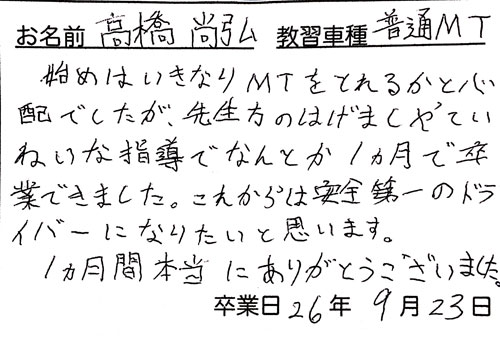 お名前 高橋 尚弘 教習車種 普通MT
始めはいきなりMTをとれるかと心
配でしたが、先生方のはげましやてい
ねいな指導でなんとか1ヵ月で卒
業できました。これからは安全第一のドラ
イバーになりたいと思います。
1ヵ月間本当にありがとうございました。
卒業日26年9月23日